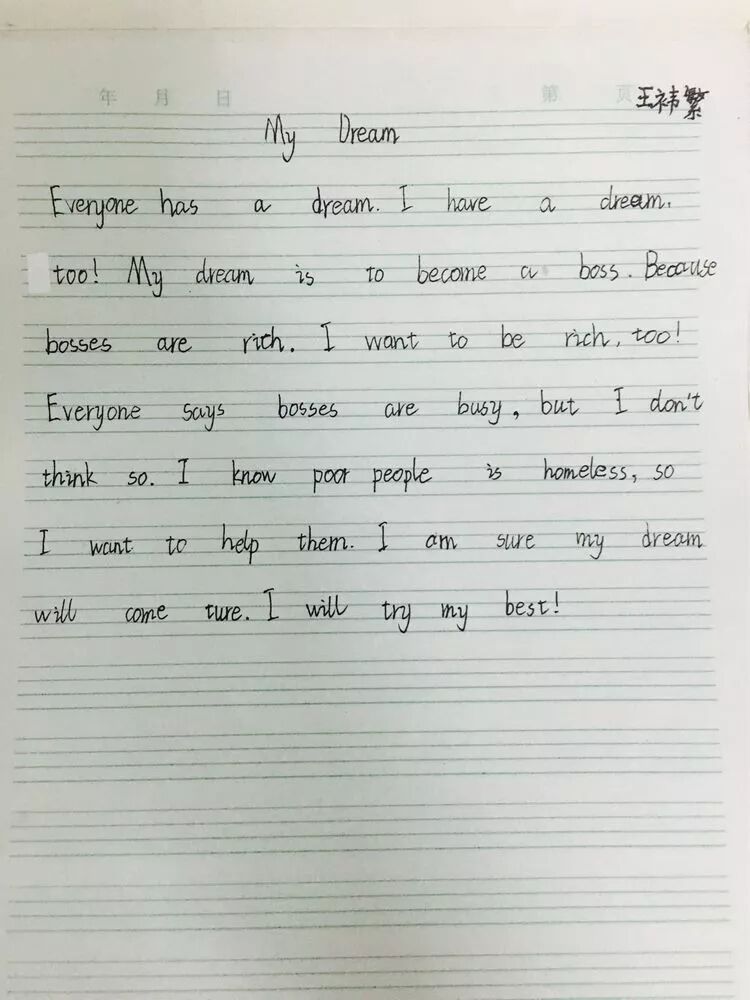 年 月 日 第 页
王祎繁
My Dream
Everyone has a dream. I have a dream.
too! My dream is to become a boss. Because
bosses are rich. I want to be rich, too!
Everyone says bosses are busy, but I don't
think so. I know poor people is homeless, so
I want to help them. I am sure my dream
will come ture. I will try my best!